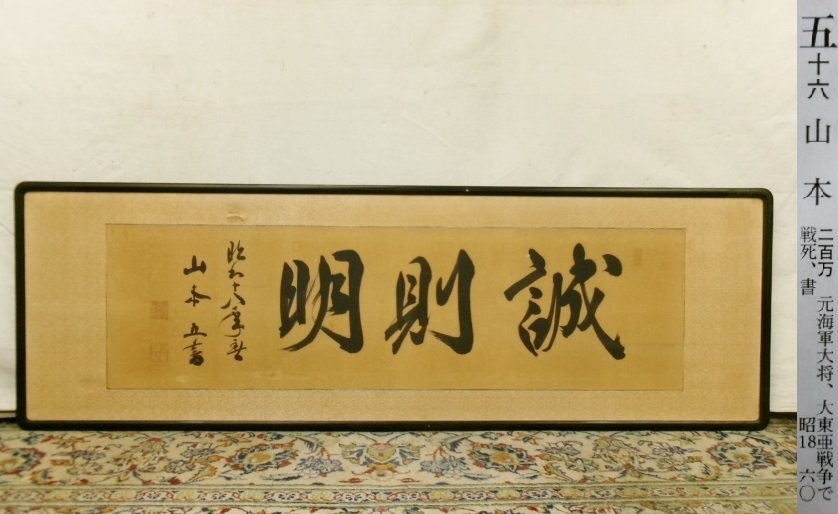 誠則明
昭和十八年春
山本五書
五十六 山本
二百万 元海軍大将、大東亜戦争で
戦死、書 昭18 六〇